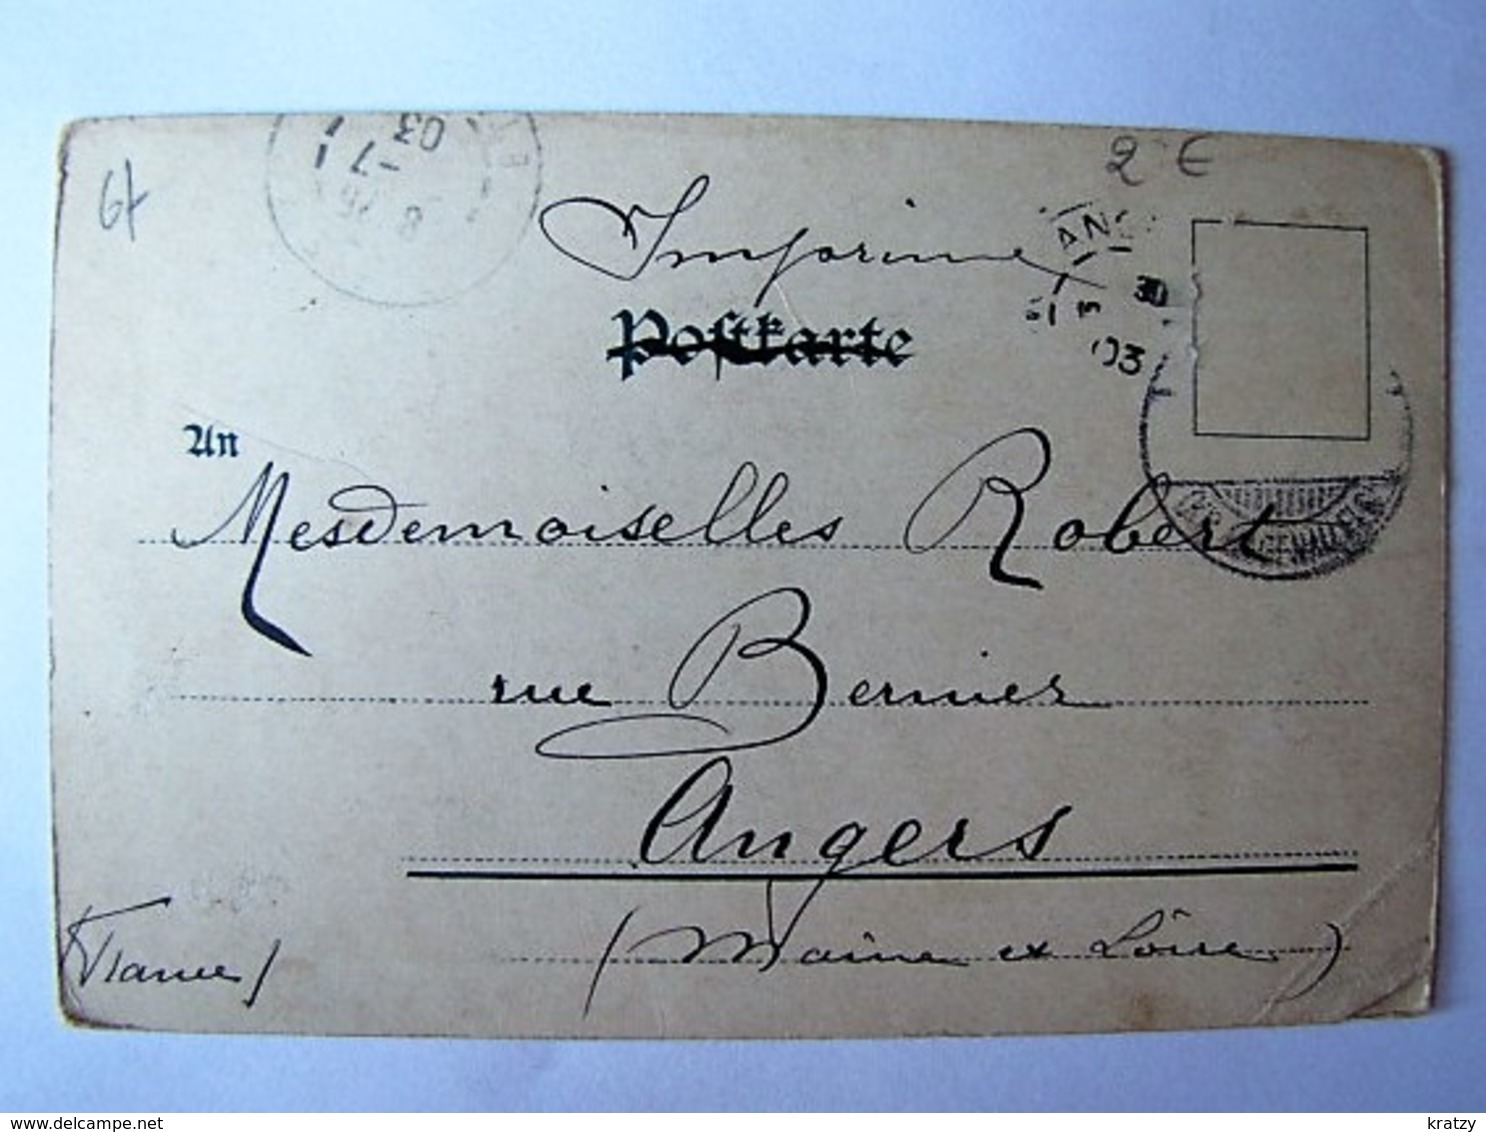 03
7
8
2 €
Imprimé
ANG
30
03
Postkarte
An
Mesdemoiselles Robert
rue Bernier
Angers
(Maine et Loire)
(France)
delcampe.net
kratzy